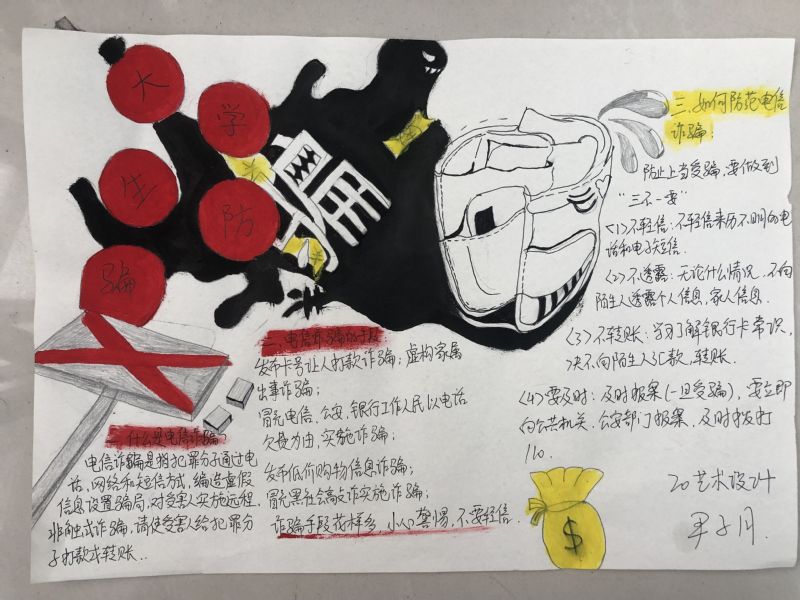 大
学
生
防
骗
一、什么是电信诈骗
电信诈骗是指犯罪分子通过电
话,网络和短信方式,编造虚假
信息设置骗局,对受害人实施远程,
非触式诈骗,请使受害人给犯罪分
子打款或转账..
二、电信诈骗的手段
发布卡号让人打款诈骗;虚构家属
出事诈骗;
冒充电信,公安,银行工作人民以电话
欠费为由,实施诈骗;
发布低价购物信息诈骗;
冒充黑社会高文诈实施诈骗;
诈骗手段花样多 小心警惕,不要轻信.
三、如何防范电信
诈骗:
防止上当受骗,要做到
“三不一要”
<1>不轻信:不轻信来历不明的电
话和电子短信.
<2>不透露:无论什么情况,不向
陌生人透露个人信息,家人信息.
<3>不转账:学习了解银行卡常识,
决不向陌生人汇款,转账.
<4>要及时:及时报案(一旦受骗),要立即
向公共机关,公安部门报案,及时拨打
110.
20艺术设计
$